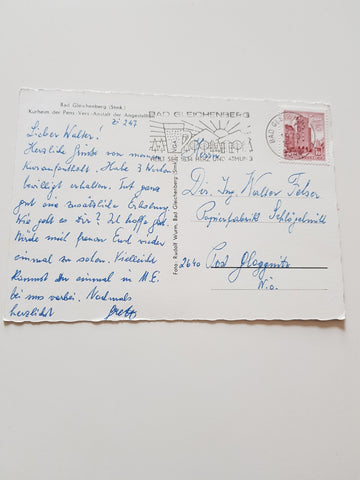 Bad Gleichenberg (Stmk.)
Kurheim der Pens. Vers. Anstalt der Angestellten
Lieber Walter!
Herzliche Grüße von meinem
Kuraufenthalt. Habe 3 Wochen
bewilligt erhalten. Tut ganz
gut eine zusätzliche Erholung.
Wie geht es Dir? Ich hoffe gut.
Würde mich freuen Euch wieder
einmal zu sehen. Vielleicht
kommst Du einmal in
bei uns vorbei. Nochmals
herzlichst
Foto: Rudolf Wurm, Bad Gleichenberg (Stmk.)
BAD GLEICHENBERG
HEILT SEIT 1834 HERZ UND ATMUNG
Ing. Walter Felser
Papierfabrik Schlöglmühl
2640 Post Gloggnitz
N.Ö.